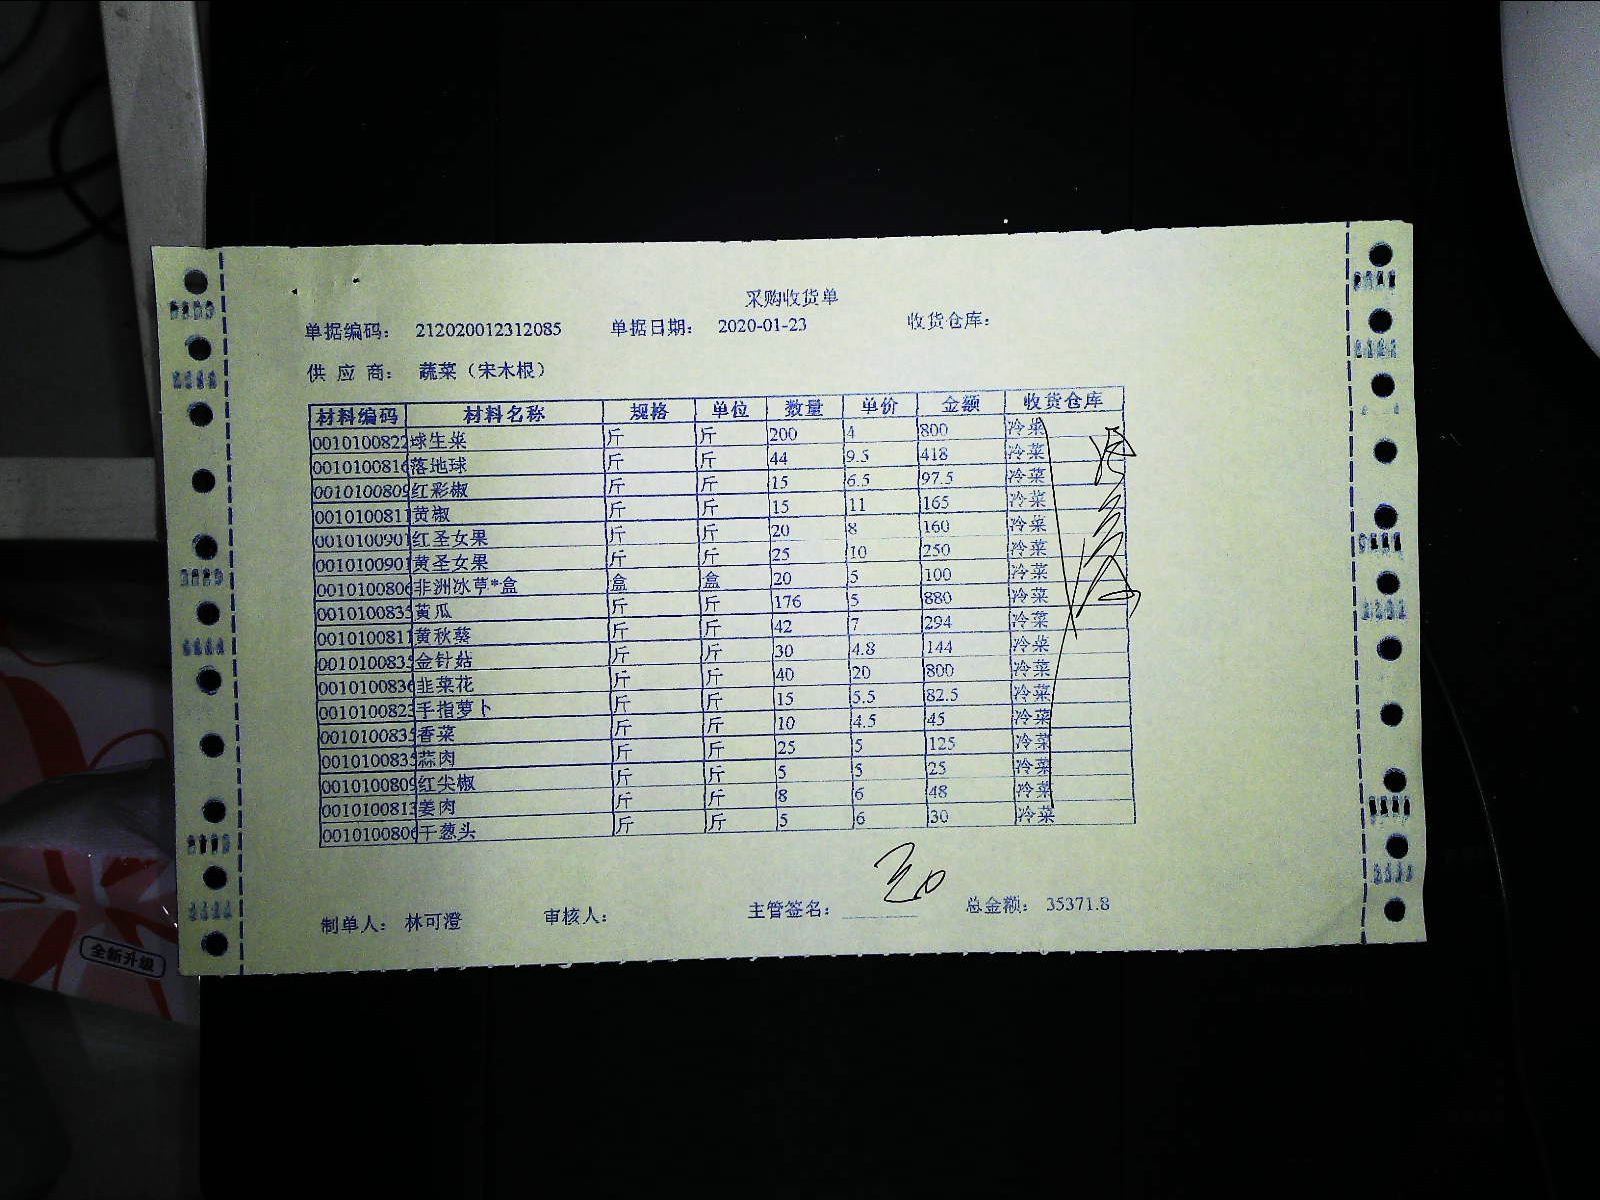 采购收货单
单据编码： 212020012312085 单据日期： 2020-01-23 收货仓库：
供 应 商： 蔬菜（宋木根）
材料编码 材料名称 规格 单位 数量 单价 金额 收货仓库
0010100822 球生菜 斤 斤 200 4 800 冷菜
001010081 落地球 斤 斤 44 9.5 418 冷菜
001010080 红彩椒 斤 斤 15 6.5 97.5 冷菜
0010100811 黄椒 斤 斤 15 11 165 冷菜
0010100901 红圣女果 斤 斤 20 8 160 冷菜
0010100901 黄圣女果 斤 斤 25 10 250 冷菜
001010080 非洲冰草*盒 盒 盒 20 5 100 冷菜
0010100835 黄瓜 斤 斤 176 5 880 冷菜
0010100811 黄秋葵 斤 斤 42 7 294 冷菜
001010083 金针菇 斤 斤 30 4.8 144 冷菜
001010083 韭菜花 斤 斤 40 20 800 冷菜
001010082 手指萝卜 斤 斤 15 5.5 82.5 冷菜
001010083 香菜 斤 斤 10 4.5 45 冷菜
001010083 蒜肉 斤 斤 25 5 125 冷菜
001010080 红尖椒 斤 斤 5 5 25 冷菜
001010081 姜肉 斤 斤 8 6 48 冷菜
001010080 干葱头 斤 斤 5 6 30 冷菜
制单人： 林可澄 审核人： 主管签名： 总金额： 35371.8
全新升级